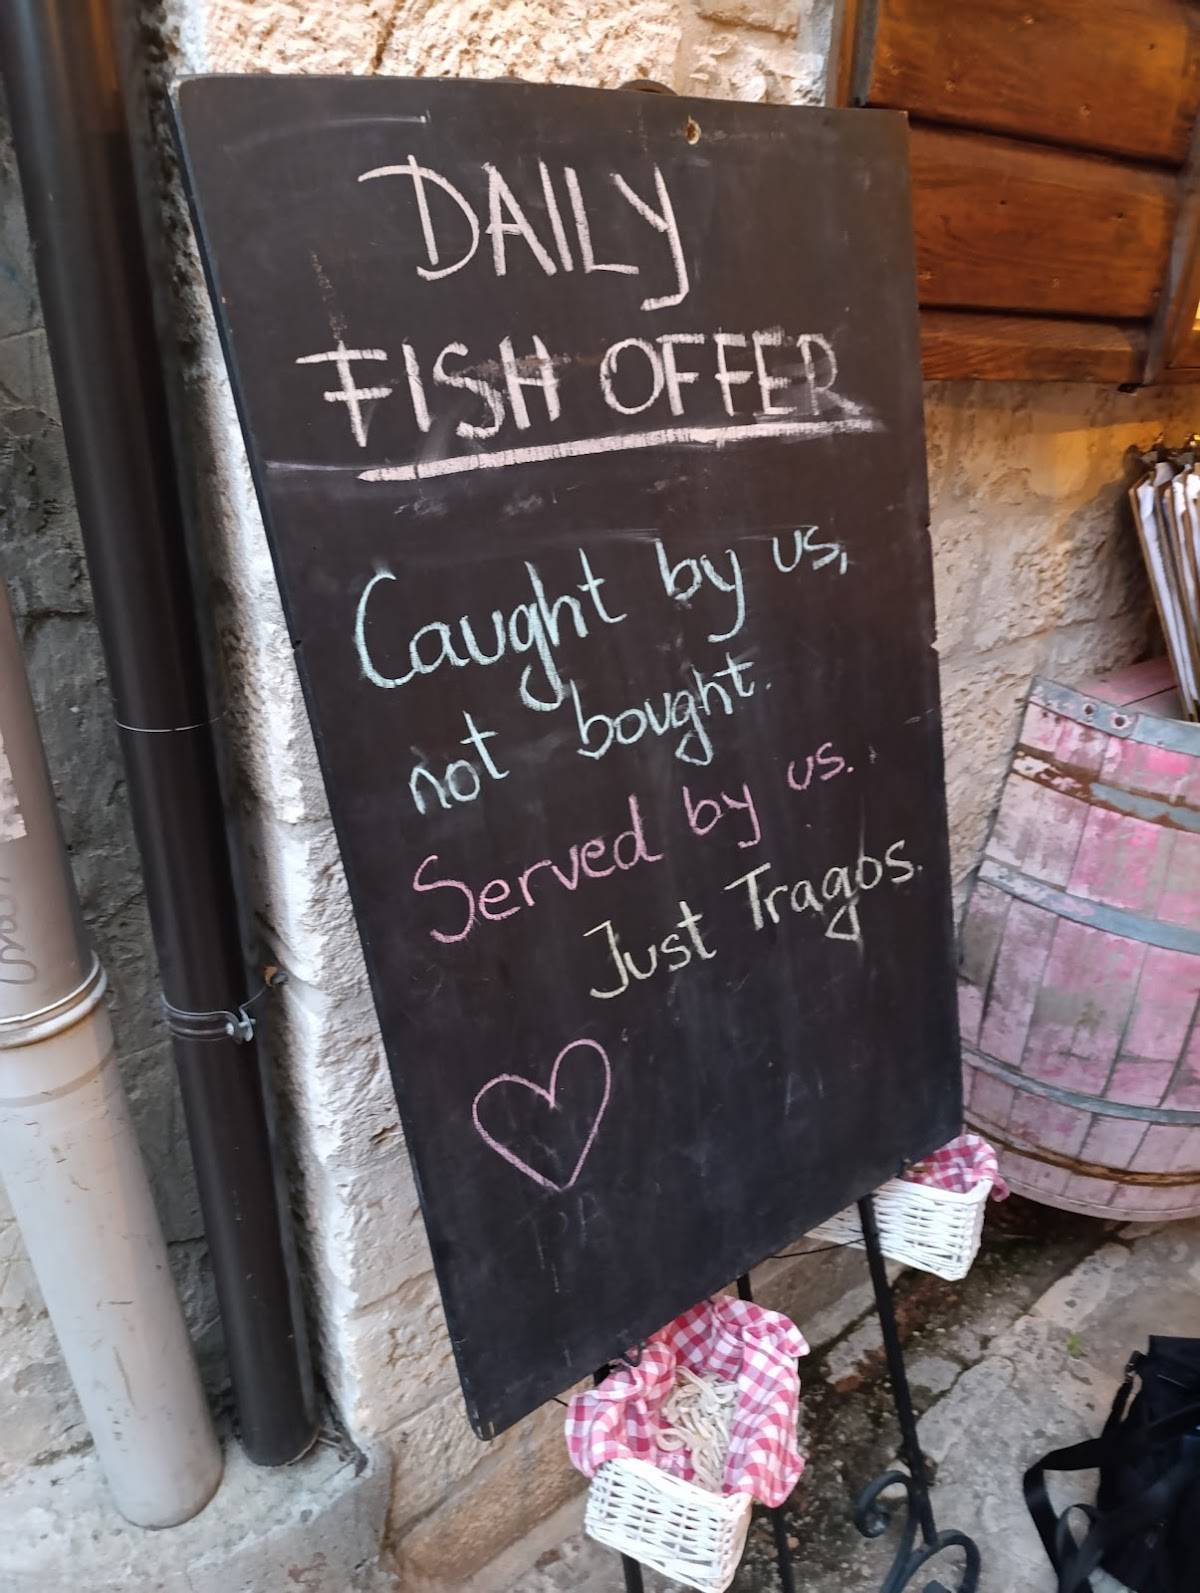 DAILY
FISH OFFER
Caught by us,
not bought.
Served by us.
Just Tragos.